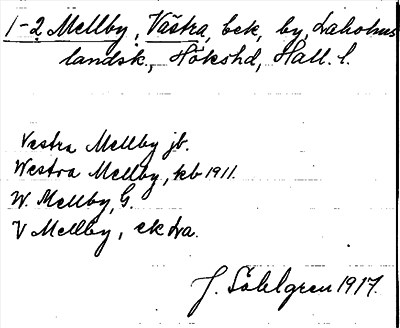 1-2 Mellby, Västra, bek, by, Laholms
landsk., Hökshd, Hall. l.
Vestra Mellby jb.
Westra Mellby, kb 1911.
W. Mellby, G.
V Mellby, ek
J. Sahlgren 1917.